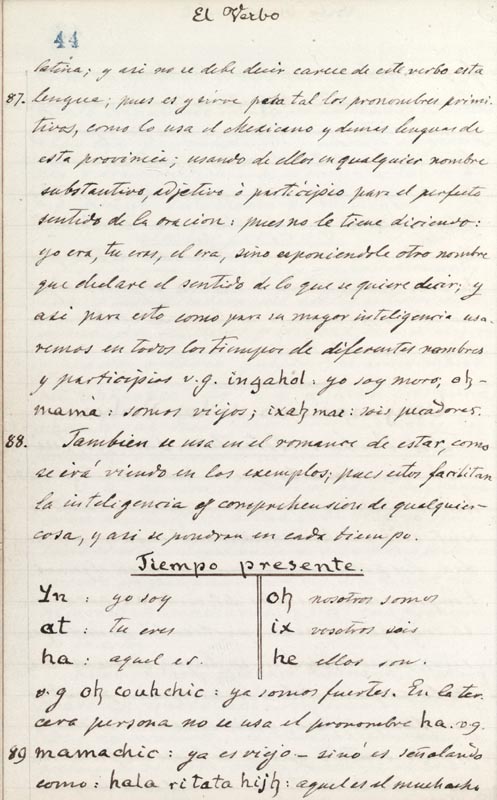 El Verbo
44
latina; y asi no se debe decir carece de este verbo esta
87. lengua; pues es y sirve para tal los pronombres primi-
tivos, como lo usa el Mexicano y demas lenguas de
esta provincia; usando de ellos en qualquier nombre
substantivo, adjetivo ò participio para el perfecto
sentido de la oracion: pues no le tiene diciendo:
yo era, tu eras, el era, sino esponiendole otro nombre
que declare el sentido de lo que se quiere decir; y
asi para esto como para su mayor inteligencia usa-
remos en todos los tiempos de diferentes nombres
y participios v.g. inzahól: yo soy moro, oꜧ-
mamá: somos viejos; ixaꜧmae: sois pecadores.
88. Tambien se usa en el romance de estar, como
se irá viendo en los exemplos; pues estos facilitan
la inteligencia y comprehension de qualquier
cosa, y asi se pondran en cada tiempo.
Tiempo presente.
Yn : yo soy oꜧ nosotros somos
at : tu eres ix vosotros sois
ha : aquel es. he ellos son.
v.g oꜧ couhchic : ya somos fuertes. En la ter-
cera persona no se usa el pronombre ha. v.g.
89 mamachic : ya es viejo – sinó es señalando
como : hala ritata hijꜧ : aquel es el muchacho